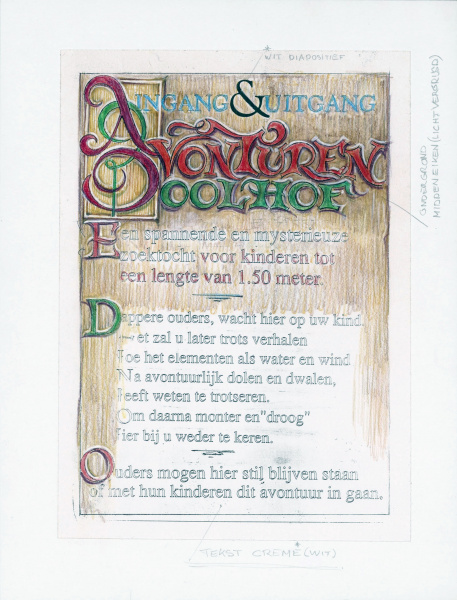 * WIT DIAPOSITIEF
INGANG & UITGANG
AVONTUREN
DOOLHOF
Een spannende en mysterieuze
zoektocht voor kinderen tot
een lengte van 1.50 meter.
Dappere ouders, wacht hier op uw kind.
Het zal u later trots verhalen
Hoe het elementen als water en wind
Na avontuurlijk dolen en dwalen,
Heeft weten te trotseren.
Om daarna monter en"droog"
Hier bij u weder te keren.
Ouders mogen hier stil blijven staan
of met hun kinderen dit avontuur in gaan.
ONDERGROND
MIDDEN EIKEN (LICHT VERGRIJSD)
TEKST CREME (WIT) *